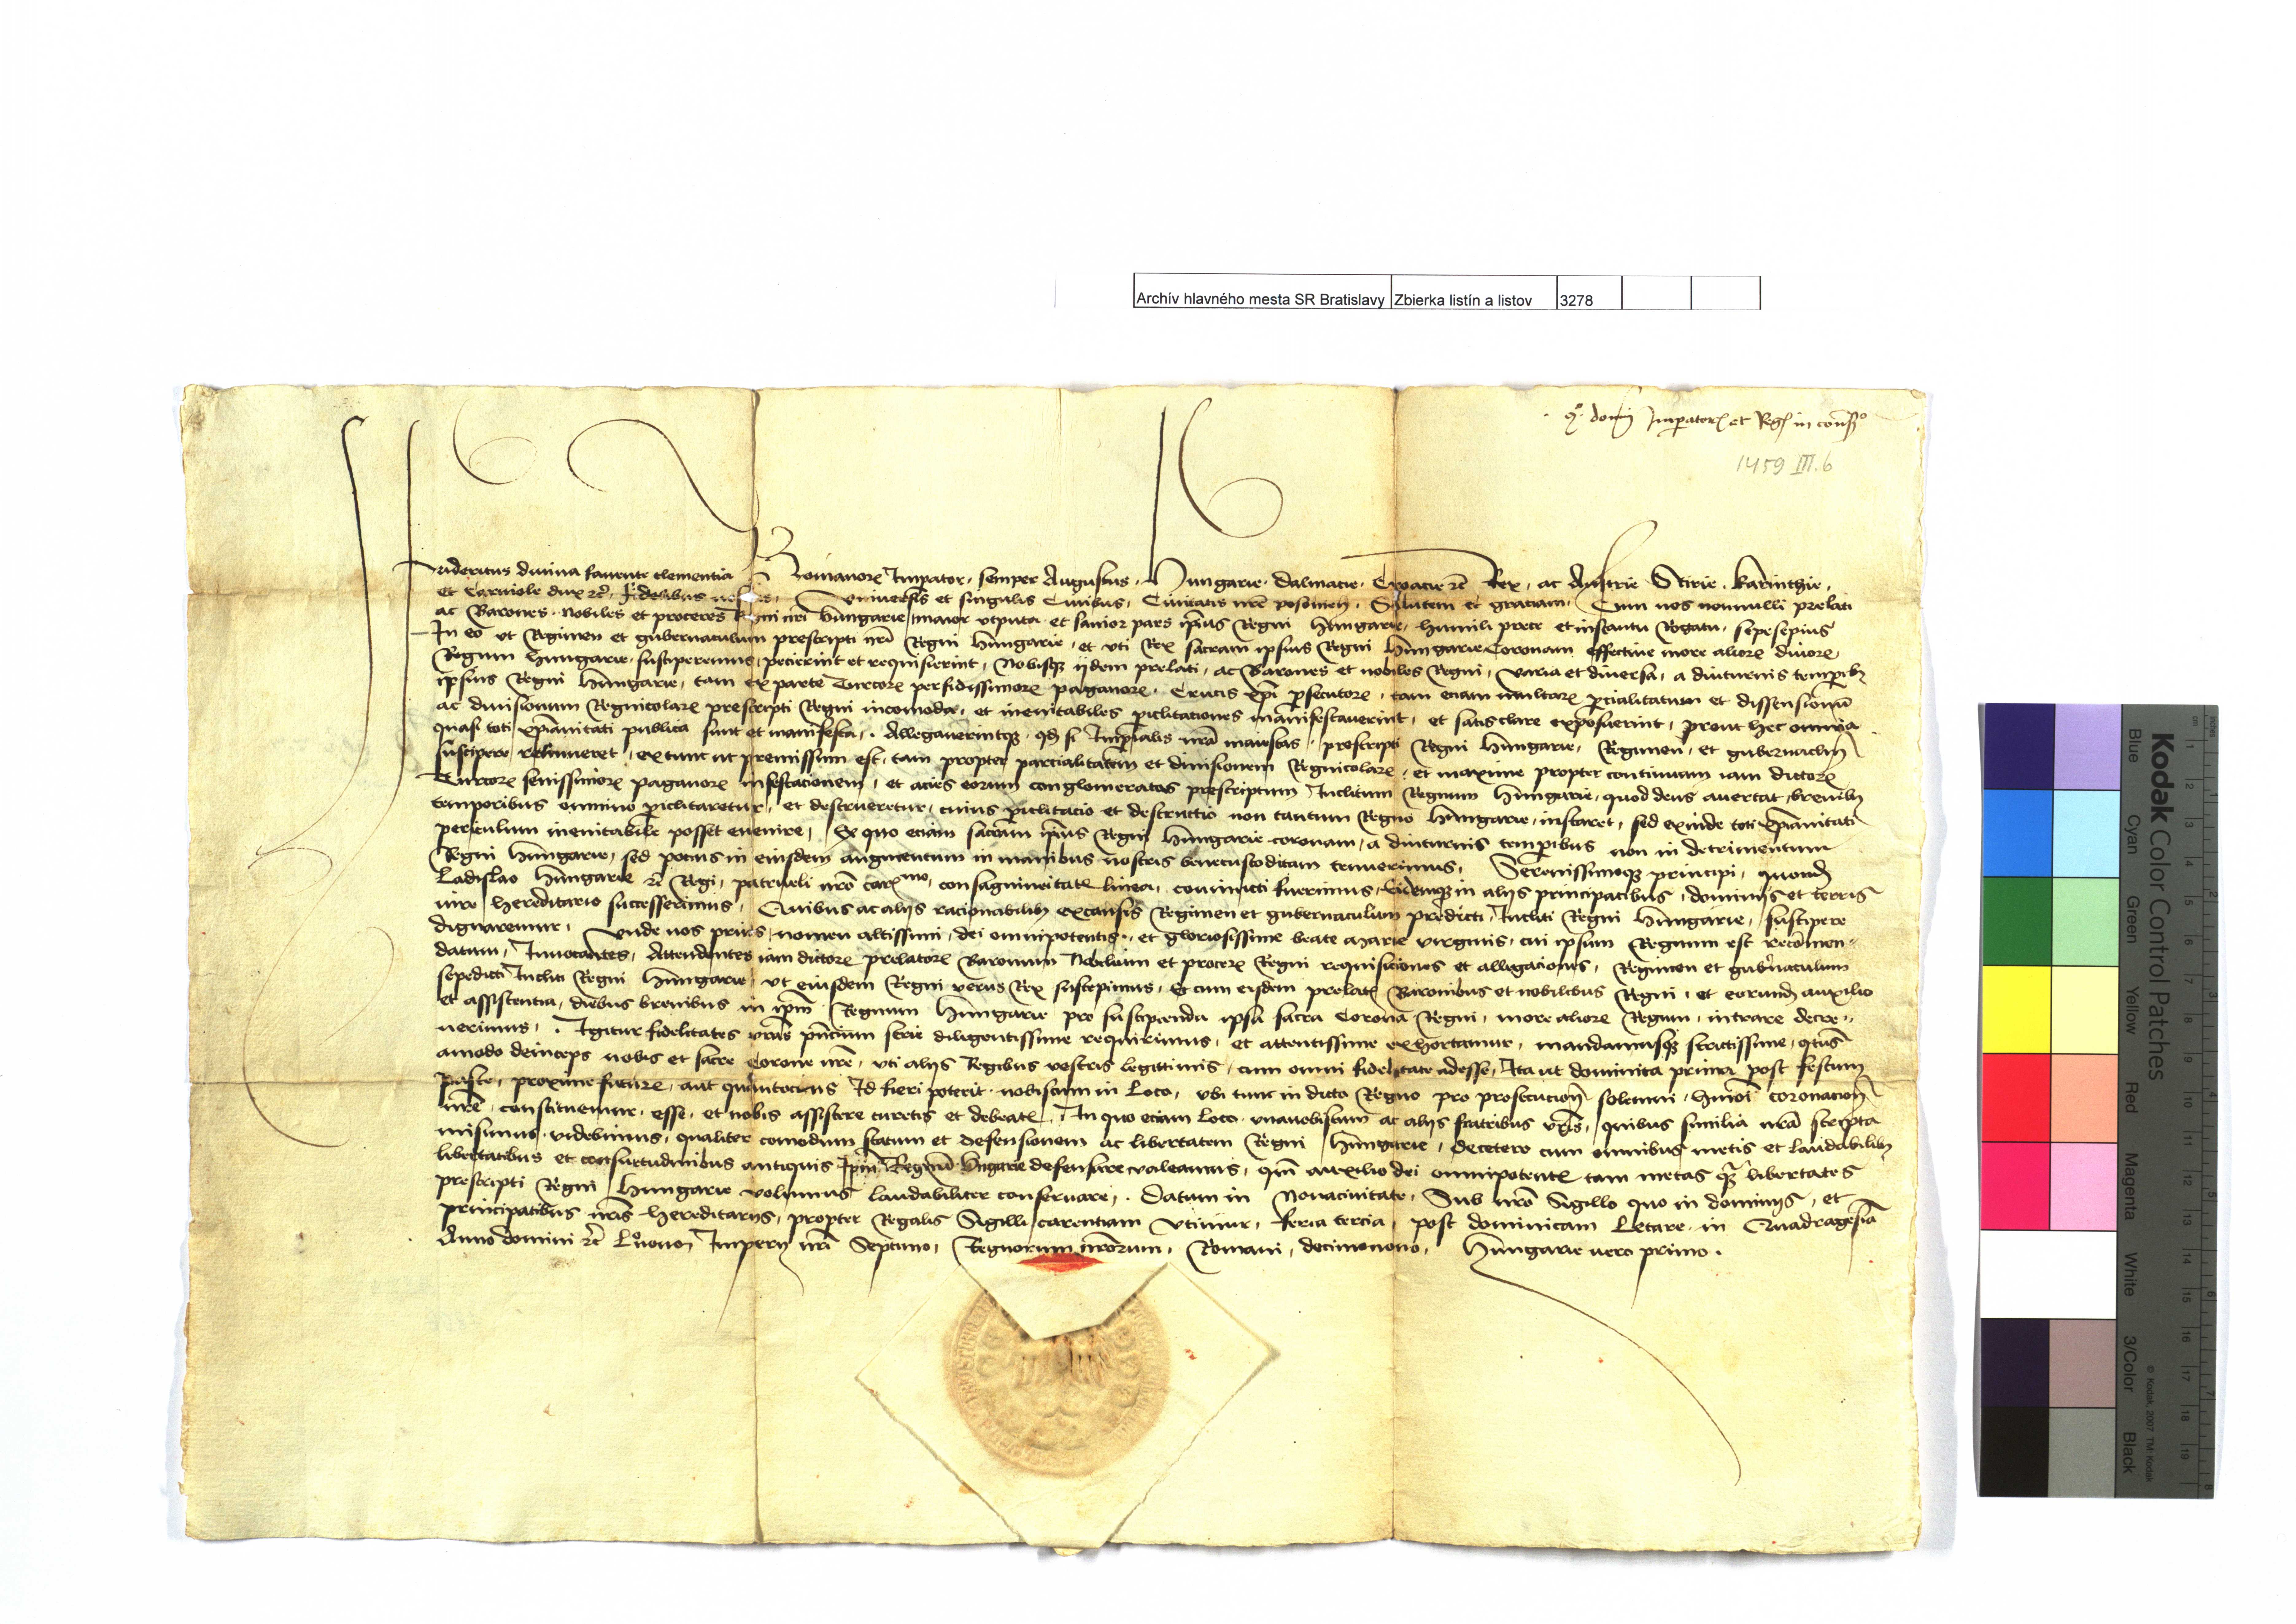 Archív hlavného mesta SR Bratislavy Zbierka listín a listov 3278
domini Imperatoris et Regis in consilio
1459 III.6
Fridericus divina favente clementia Romanorum Imperator semper Augustus Hungarie Dalmacie Croacie etc Rex ac Austrie Stirie Karinthie
et Carniole dux etc fidelibus universis et singulis Civibus Civitatis nre posonien Salutem et graciam Cum nos nonnulli prelati
ac Barones Nobiles et proceres Regni nri hungarie maior utputa et sanior pars ipsius Regni hungarie humili prece et instantu Rogatu sepesepius
In eo ut Regimen et gubernaculum prescripti nri Regni hungarie et uti Rex sacram ipsius Regni hungarie Coronam effective more aliorum divorum
Regum hungarie susciperemus pecierint et requisierint Nobisque iidem prelati ac Barones et nobiles Regni varia et diversa a diuturnis temporibus
ipsius Regni hungarie tam ex parte Turcorum perfidissimorum paganorum Crucis xpi persecutorum tam eciam multorum parcialitatum et dissensionum
ac divisionum Regnicolarum prescripti Regni incomoda et inevitabiles periclitaciones manifestaverint et satis clare exposuerint prout hec omnia
quasi toti xpianitati publica sunt et manifesta Allegaverintque quod si Imperialis nra maiestas prescripti Regni hungarie Regimen et gubernaculum
suscipere extunc ut premissum est tam propter parcialitatem et divisionem Regnicolarum et maxime propter continuam iam dictorum
Turcorum sevissimorum paganorum infestacionem et acies eorum conglomeratas prescriptum Inclitum Regnum hungarie quod deus avertat brevibus
temporibus omnino periclitaretur et destrueretur cuius periclitacio et destructio non tantum Regno hungarie instaret sed exinde toti xpianitati
periculum inevitabile posset evenire Ex quo eciam sacram ipsius Regni hungarie coronam a diuturnis temporibus non in detrimentum
Regni hungarie sed pocius in eiusdem augmentum in manibus nostris benecustoditam tenuerimus Serenissimoque principi quondam
Ladislao hungarie etc Regi patrueli nro carmo consagvineitatis linea coniuncti fuerimus eidemque in aliis principatibus dominiis et terris
iure hereditario successerimus Quibus ac aliis racionabilibus ex causis Regimen et gubernaculum predicti Incliti Regni hungarie suscipere
dignaremur Unde nos prius nomen altissimi dei omnipotentis et gloriosissime beate marie virginis cui ipsum Regnum est recomen
datum Invocantes Attendentes iam dictorum prelatorum Baronum Nobilium et procerum Regni requisiciones et allegaciones Regimen et gubernaculum
sepedicti Incliti Regni hungarie ut eiusdem Regni verus Rex suscepimus Et cum eisdem prelatis Baronibus et nobilibus Regni et eorundem auxilio
et assistentia diebus brevibus in ipsum Regnum hungarie pro suscipienda ipsa sacra Corona Regni more aliorum Regum intrare decre
verimus Igitur fidelitates vras pncium serie diligentissime requirimus et attentissime exhortamur mandamusque strictissime qtus
amodo deinceps nobis et sacre Corone nre uti aliis Regibus vestris legittimis cum omni fidelitate adesse Ita ut dominica prima post festum
pasce proxime future aut quantocius Id fieri poterit nobiscum in Loco ubi tunc in dicto Regno pro prosecucione solemni hmoi coronacion
nre constituemur esse et nobis assistere curetis et debeatis In quo eciam Loco unavobiscum ac aliis fratribus vris quibus similia nra scripta
misimus videbimus qualiter comodum statum et defensionem ac libertatem Regni hungarie decetero cum omnibus metis et laudabilibus
libertatibus et consuetudinibus antiquis Ipm Regnum hngarie defensare valeamus qm auxilio dei omnipotentis tam metas quam libertates
prescripti Regni hungarie volumus laudabiliter conservare Datum in Novacivitate Sub nro Sigillo quo in dominiis et
principatibus nris hereditariis propter Regalis Sigilli carentiam Utimur feria tercia post dominicam Letare in Quadragesima
Anno domini etc Lnono Imperii nri Septimo Regnorum nrorum Romani decimonono hungarie vero primo
Kodak Color Control Patches
© Kodak, 2007 TM: Kodak
Blue Cyan Green Yellow Red Magenta White 3/Color Black